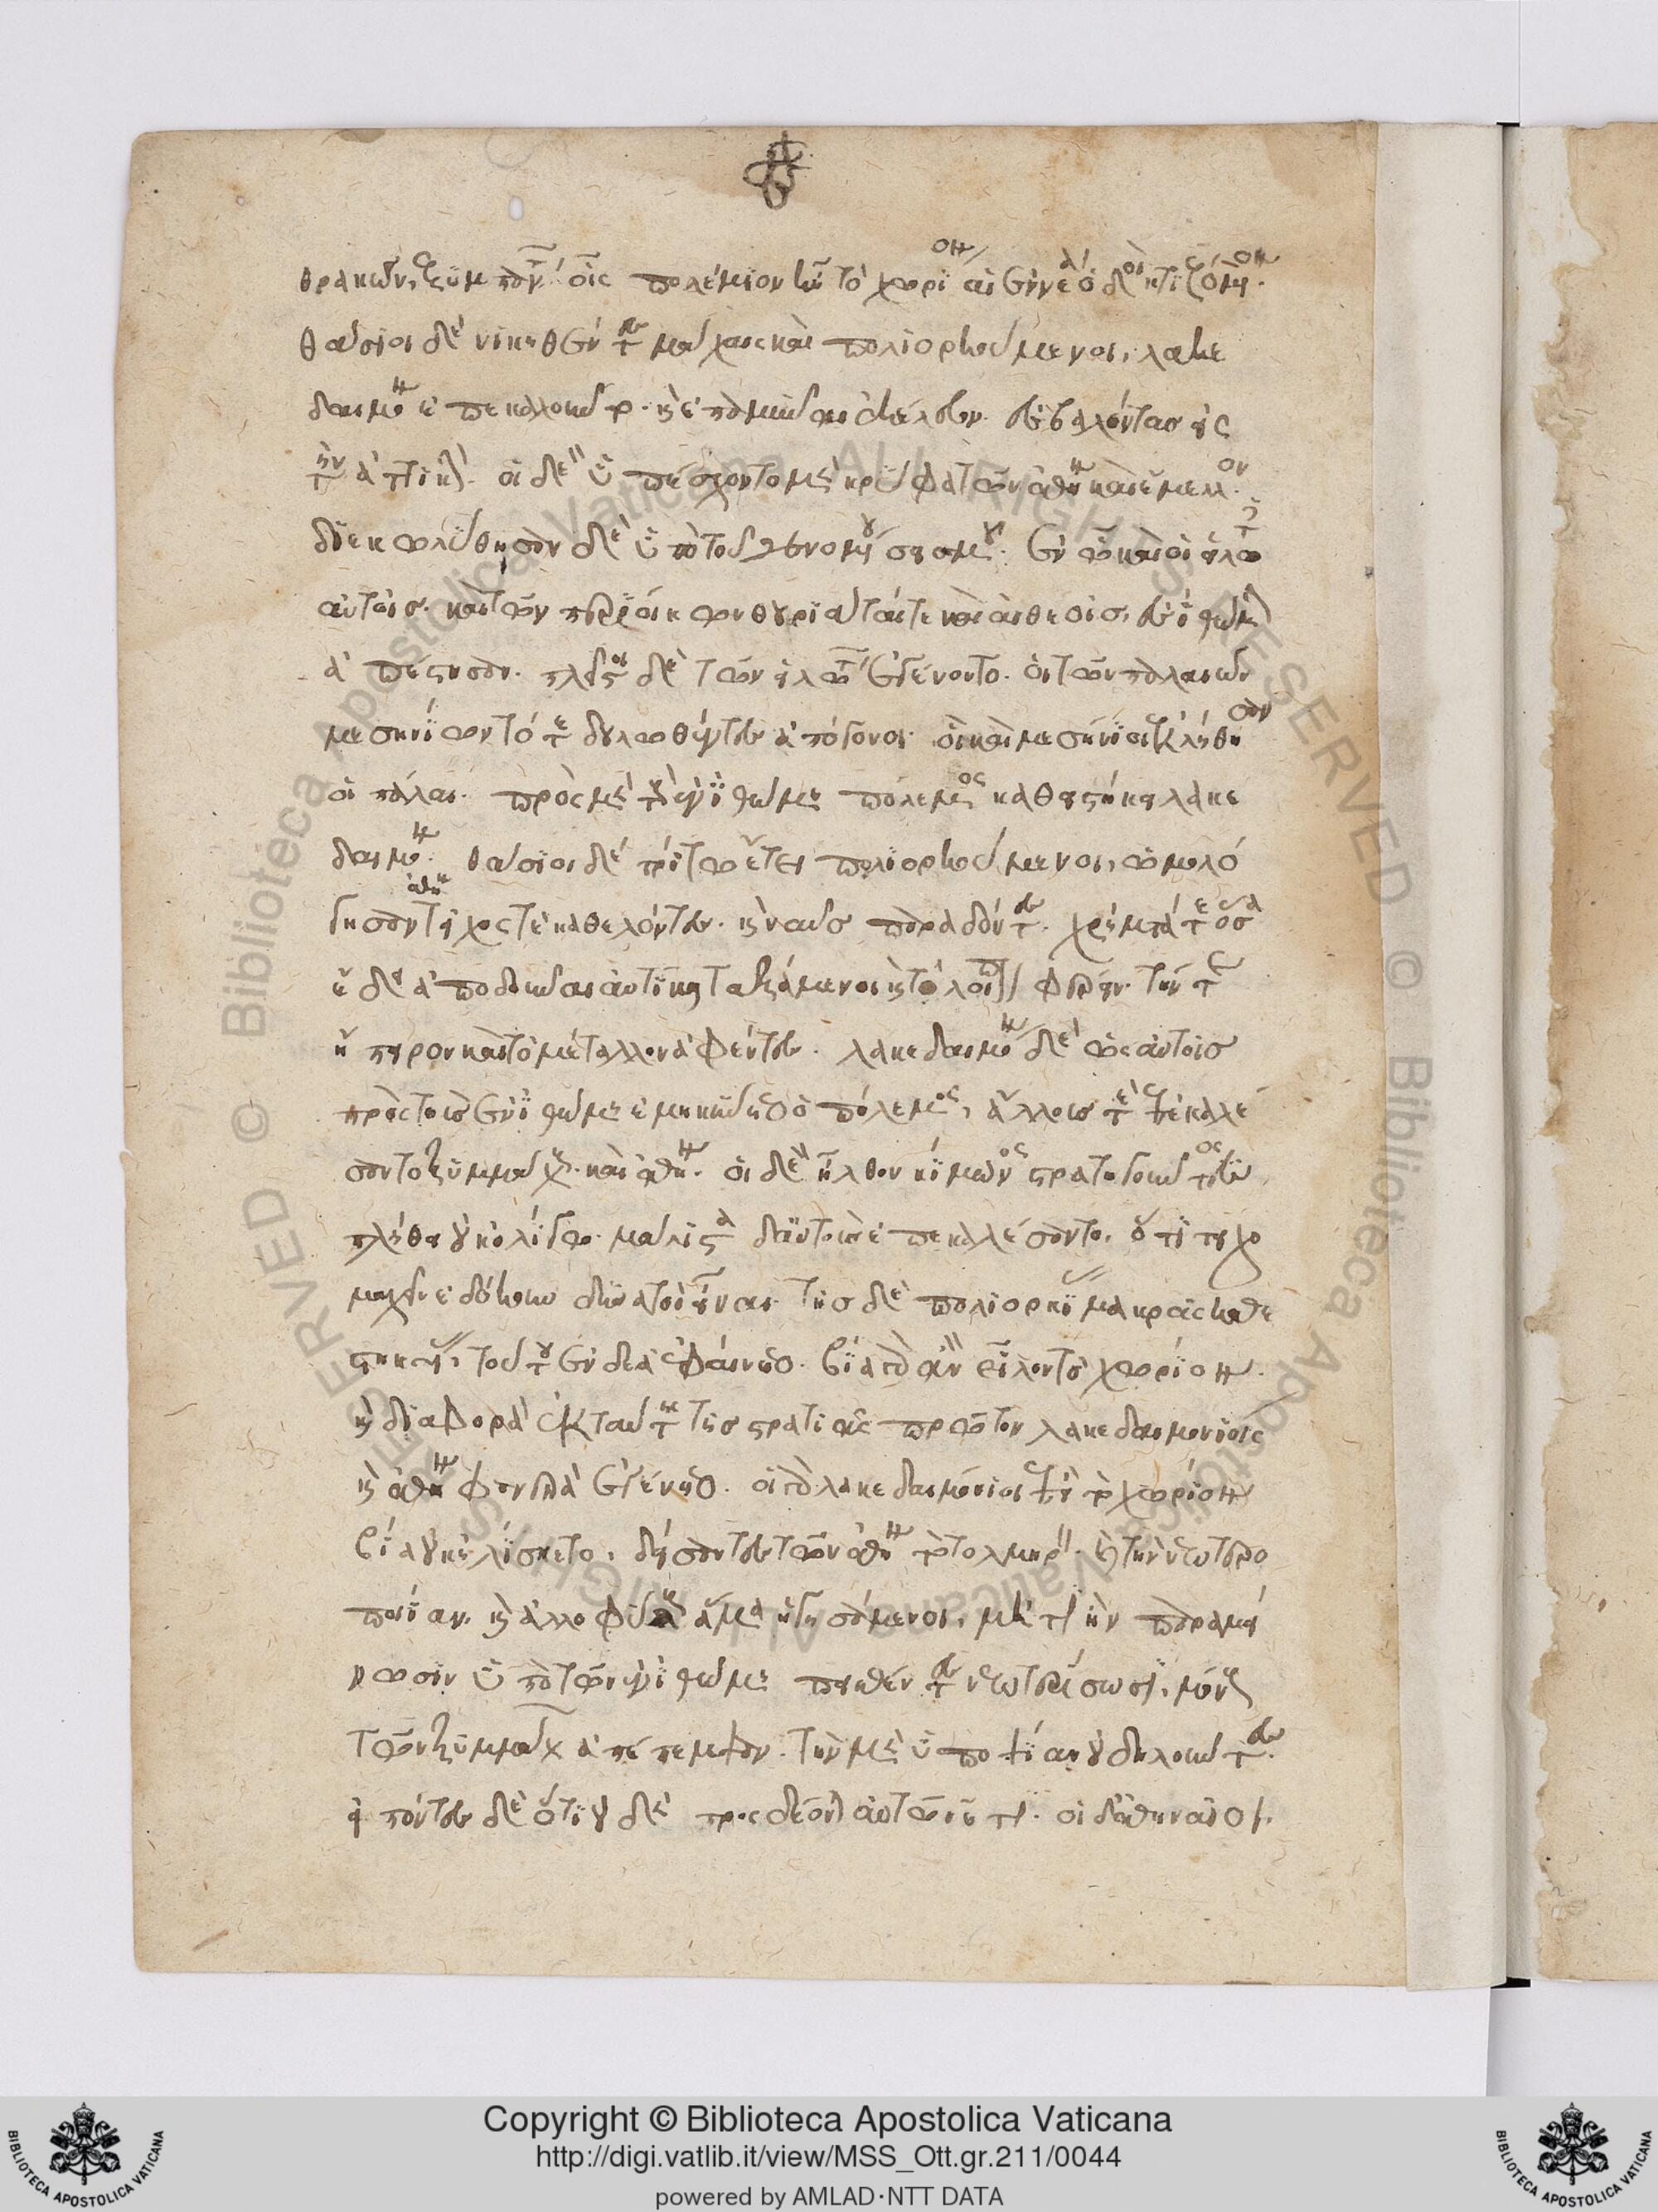 θρακῶν ξυμπάντων οἷς πολέμιον ἦν τὸ χωρίον αἱ ἐννέα ὁδοὶ κτιζόμενον.
θάσιοι δὲ νικηθέντες μάχαις καὶ πολιορκούμενοι, λακε
δαιμονίους ἐπεκαλοῦντο. καὶ ἐπαμῦναι ἐκέλευον ἐσβαλόντας ἐς
τὴν ἀττικήν. οἱ δὲ ὑπέσχοντο μὲν κρύφα τῶν ἀθηναίων καὶ ἔμελλον.
διεκωλύθησαν δὲ ὑπὸ τοῦ γενομένου σεισμοῦ. ἐν ᾧ καὶ οἱ εἵλωτες
αὐτοῖς. καὶ τῶν περιοίκων θουριᾶταί τε καὶ αἰθεεῖς, ἐς ἰθώμην
ἀπέστησαν. πλεῖστοι δὲ τῶν εἱλώτων ἐγένοντο. οἱ τῶν παλαιῶν
μεσηνίων τότε δουλωθέντων ἀπόγονοι. οἳ καὶ μεσήνιοι ἐκλήθησαν
οἱ πάντες. πρὸς μὲν τοὺς ἐν ἰθώμῃ πόλεμος καθειστήκει λακε
δαιμονίοις. θάσιοι δὲ τρίτῳ ἔτει πολιορκούμενοι, ὡμολό
γησαν ἀθηναίοις τεῖχός τε καθελόντες. καὶ ναῦς παραδόντες. χρήματά τε ὅσα
ἔδει ἀποδοῦναι αὐτίκα ταξάμενοι καὶ τὸ λοιπὸν φέρειν. τήν τε
ἤπειρον καὶ τὸ μέταλλον ἀφέντες. λακεδαιμόνιοι δὲ ὡς αὐτοῖς
πρὸς τοὺς ἐν ἰθώμῃ ἐμηκύνετο ὁ πόλεμος, ἄλλους τε ἐπεκαλέ
σαντο ξυμμάχους. καὶ ἀθηναίους. οἱ δὲ ἦλθον κίμωνος στρατηγοῦντος
πλήθει οὐκ ὀλίγῳ. μάλιστα δ' αὐτοὺς ἐπεκαλέσαντο. ὅτι τειχο
μαχεῖν ἐδόκουν δυνατοὶ εἶναι. τῆς δὲ πολιορκίας μακρᾶς καθε
στηκυίας, τούτου ἐνδεᾶ ἐφαίνετο. βίᾳ γὰρ ἂν εἷλον τὸ χωρίον.
καὶ διαφορὰ ἐκ ταύτης τῆς στρατιᾶς πρῶτον λακεδαιμονίοις
καὶ ἀθηναίοις φανερὰ ἐγένετο. οἱ γὰρ λακεδαιμόνιοι ἐπειδὴ τὸ χωρίον
βίᾳ οὐχ ἡλίσκετο, δείσαντες τῶν ἀθηναίων τὸ τολμηρὸν καὶ τὴν νεωτερο
ποιίαν. καὶ ἀλλοφύλους ἅμα ἡγησάμενοι, μή τι ἢν παραμεί
νωσιν ὑπὸ τῶν ἐν ἰθώμῃ πεισθέντες νεωτερίσωσι, μόνους
τῶν ξυμμάχων ἀπέπεμψαν. τὴν μὲν ὑποψίαν οὐ δηλοῦντες.
εἰπόντες δὲ ὅτι οὐδὲν προσδέονται αὐτῶν ἔτι. οἱ δ' ἀθηναῖοι